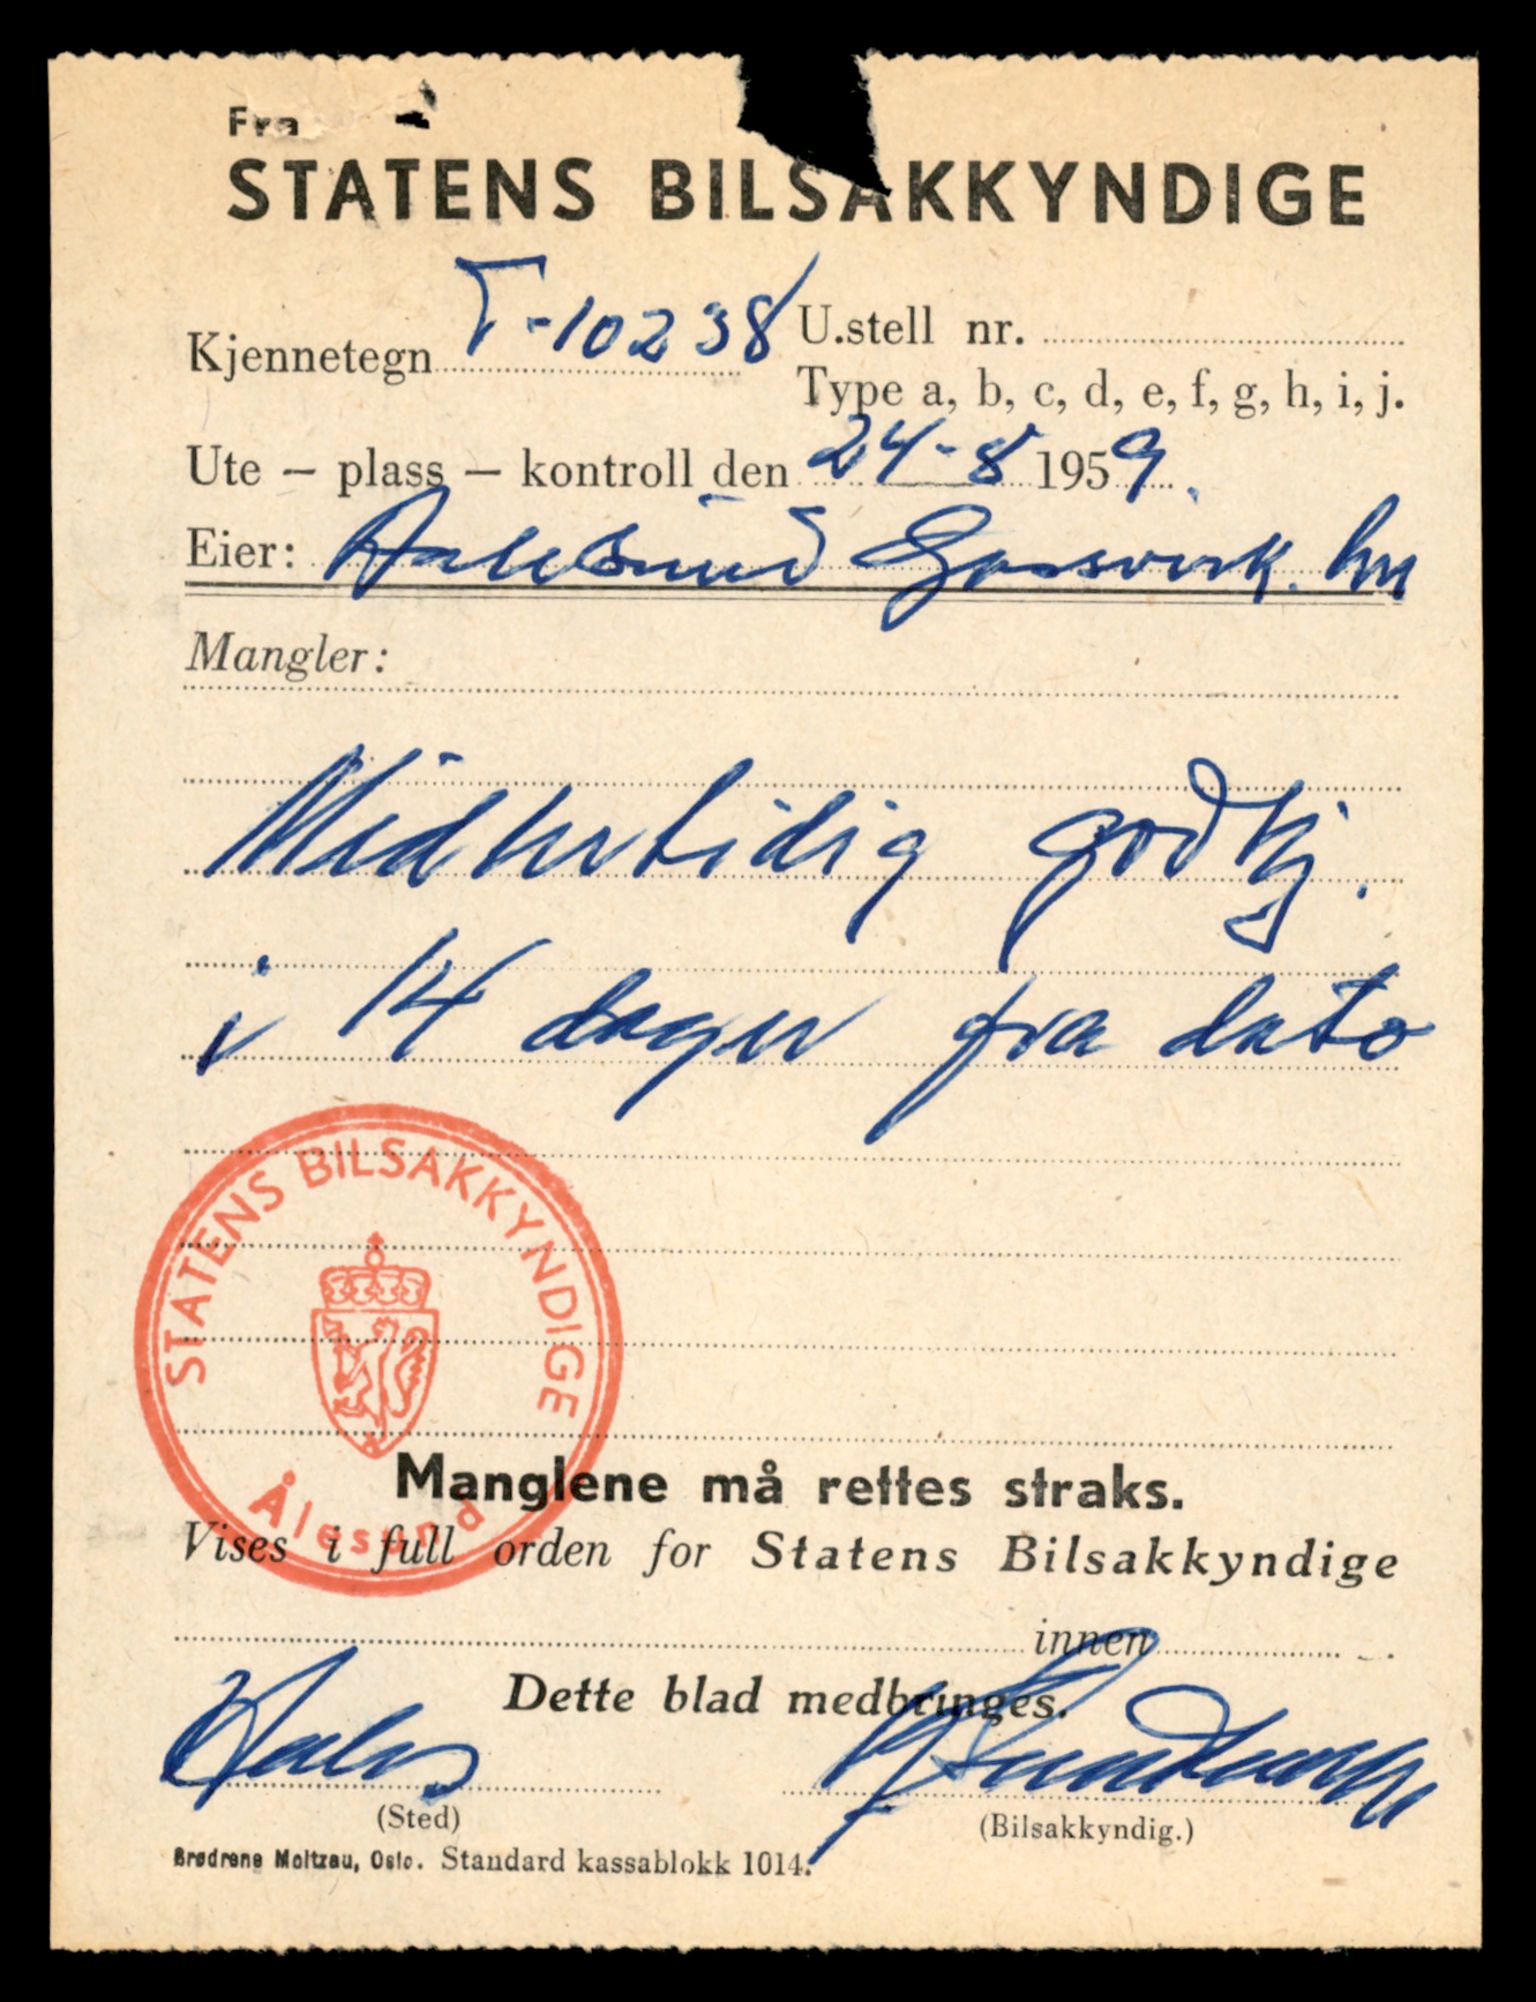 Fra
STATENS BILSAKKYNDIGE
Kjennetegn T-10238 U.stell nr.
Type a, b, c, d, e, f, g, h, i, j.
Ute – plass – kontroll den 24-8 1959.
Eier: Aalesund Gassverk. her
Mangler:
Midlertidig godkj.
i 14 dager fra dato
STATENS BILSAKKYNDIGE
Ålesund
Manglene må rettes straks.
Vises i full orden for Statens Bilsakkyndige
innen
Dette blad medbringes.
(Sted) (Bilsakkyndig.)
Brødrene Moltzau, Oslo. Standard kassablokk 1014.